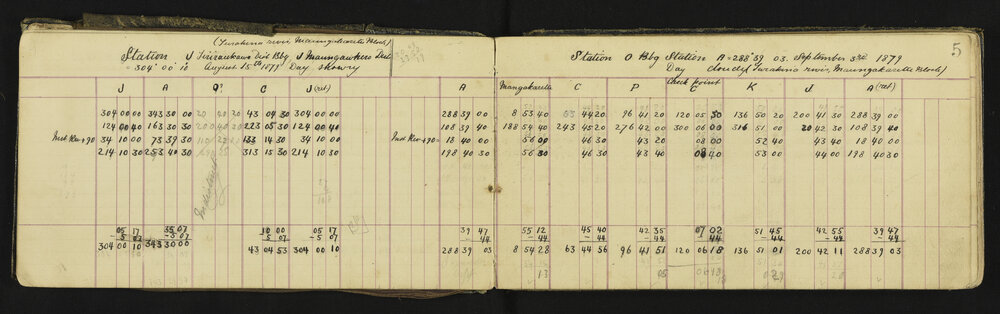 (Turakina river, Maungakaretu Block)
Station J Dist Bdg J Dist
= 304° 00' 10" August 15th 1879 Day showry
J A C J (ret)
304 00 00 343 30 00 43 04 30 304 00 00
124 00 40 163 30 30 223 05 30 124 00 40
Inst Rev + 90 34 10 00 73 39 30 133 14 30 34 10 00
214 10 30 253 40 30 313 15 30 214 10 30
05 17 35 07 10 00 05 17
- 5 07 - 5 07 - 5 07 - 5 07
304 00 10 343 30 00 43 04 53 304 00 10
5
Station O Bdg Station A = 288° 39' 03. September 3rd 1879
Day cloudy (Turakina river, Maungakaretu Block)
Check point
A Maungakaretu C P C K J A (ret)
288 39 00 8 53 40 63 44 20 96 41 20 120 05 30 136 50 20 200 41 30 288 39 00
108 39 40 188 54 40 243 45 20 276 42 00 300 06 00 316 51 00 20 42 30 108 39 40
Inst Rev + 90 = 18 40 00 56 00 46 30 43 20 08 00 52 40 43 40 18 40 00
198 40 30 56 30 46 30 43 40 08 40 53 00 44 00 198 40 30
39 47 55 12 45 40 42 35 07 02 51 45 42 55 39 47
- 44 - 44 - 44 - 44 - 44 - 44 - 44 - 44
288 39 03 8 54 28 63 44 56 96 41 51 120 06 18 136 51 01 200 42 11 288 39 03
13 05 06 18 0 29